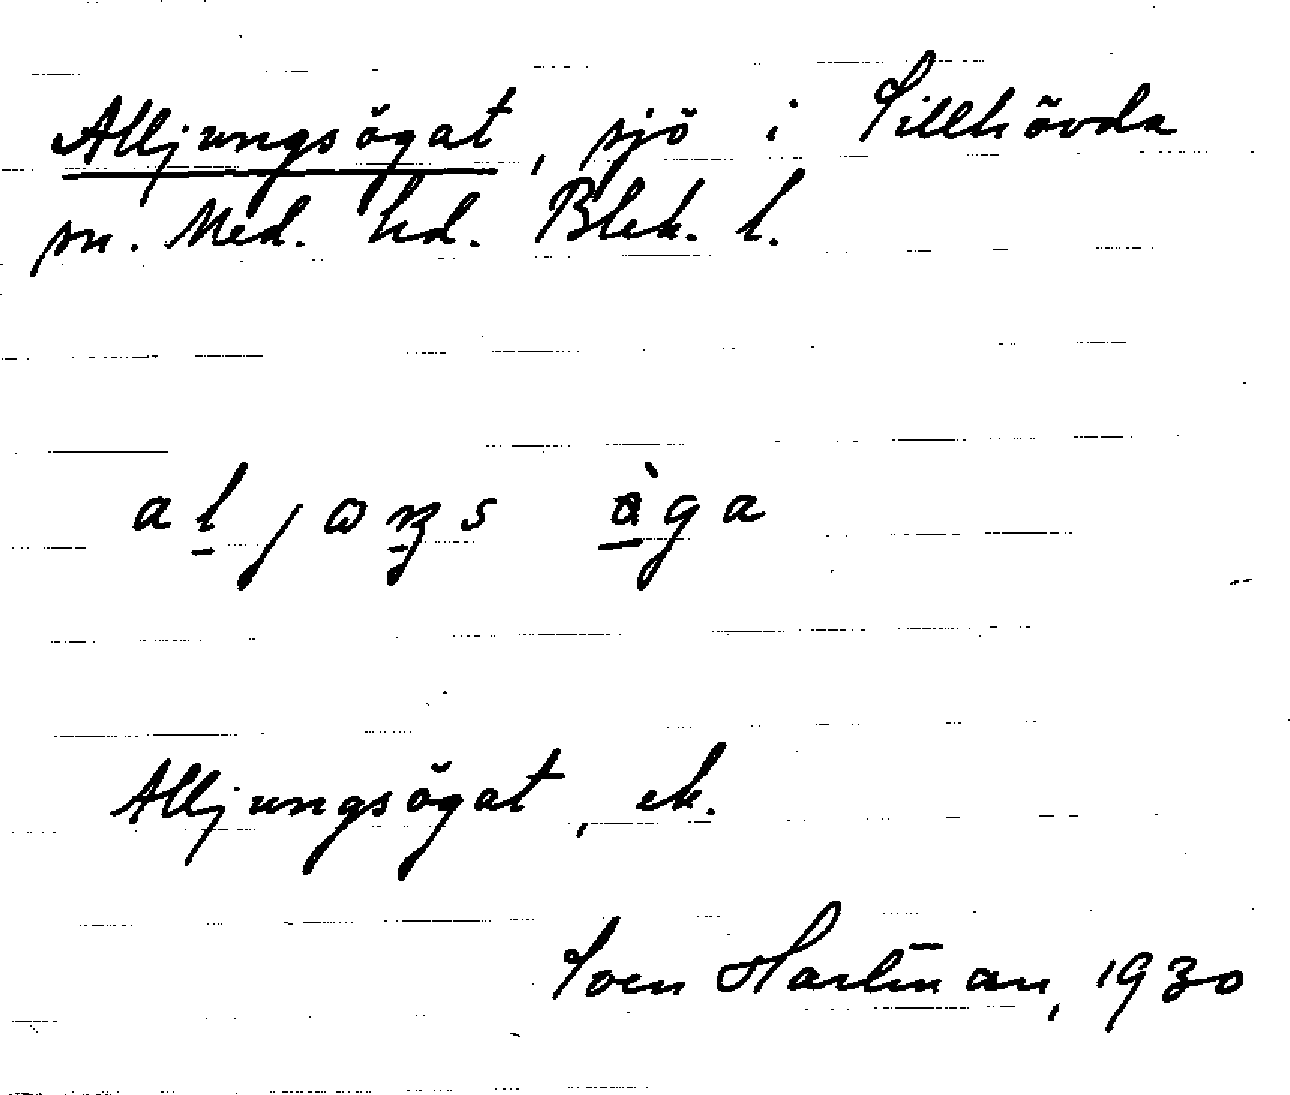 Alljungsögat, sjö i Sillhövda
sn. Med. hd. Blek. l.
Alljungsögat, ek.
Sven Hartman, 1930